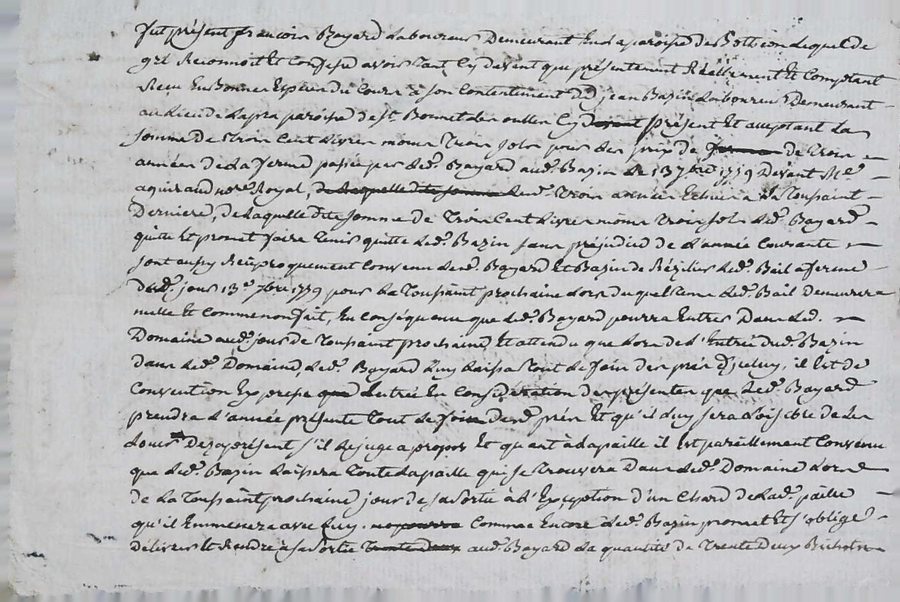 fut présent françois Bayard Laboureur Demeurant En la paroisse de lequel de
gré Reconnoit Et Confesse avoir tant Cy devant que présentement Réellement Et Comptant
Recu En Bonne Espèces du Cours à son Contentement de jean Bazin Laboureur Demeurant
au Lieu de Lapra paroisse de st Bonnet Cy devant présent Et acceptant La
somme de trois Cent Livres moins Trois sols pour des prix de ferme de Trois
années de La ferme passée par led. Bayard aud. Bazin le 13 7bre 1779 Devant Me
notre Royal, de laquelle dite somme Lesd. Trois années Echues à La Toussaint
Derniere, de Laquelle dite somme de Trois Cent Livres moins Trois sols led. Bayard
quitte Et promet faire tenir quitte led. Bazin sans préjudice de L'année Courante
sont aussy Réciproquement Convenu lesd. Bayard Et Bazin de Rézilier led. Bail à ferme
dud. jour 13e 7bre 1779 pour La Toussaint prochaine Lors duquel tems led. Bail demeurera
nulle Et Comme non fait, En conséquence que led. Bayard pourra Entrer Dans led.
Domaine aud. jour de Toussaint prochaine Et attendu que Lors de L'Entrée dud. Bazin
dans led. Domaine, led. Bayard Luy Laissa Tout le foin des prés D'jceluy, il Est de
Convention Expresse que Lentrée En Considération des présentes que led. Bayard
prendra L'année présente Tout le foin desd. prés Et qu'il Luy sera Loisible de Les
Louer Dès à présent s'il Le juge à propos Et quant à La paille il Est pareillement Convenu
que led. Bazin Laissera Toute La paille qui se Trouvera Dans led. Domaine Lors
de La Toussaint prochaine jour de sa sortie à L'Exception d'un Chard de lad. paille
qu'il Emmenera avec Luy, ne pourra Comme Encore led. Bazin promet Et s'oblige
délivrer Et Rendre à sa sortie Trente deux aud. Bayard La quantité de Trente Deux Bichets